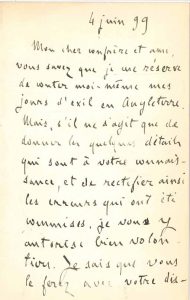 4 juin 99
Mon cher confrère et ami,
vous savez que je me réserve
de conter moi-même mes
jours d'exil en Angleterre.
Mais, s'il ne s'agit que de
donner les quelques détails
qui sont à votre connais-
sance, et de rectifier ainsi
les erreurs qui ont été
commises, je vous y
autorise bien volon-
tiers. Je sais que vous
le ferez avec votre dis-